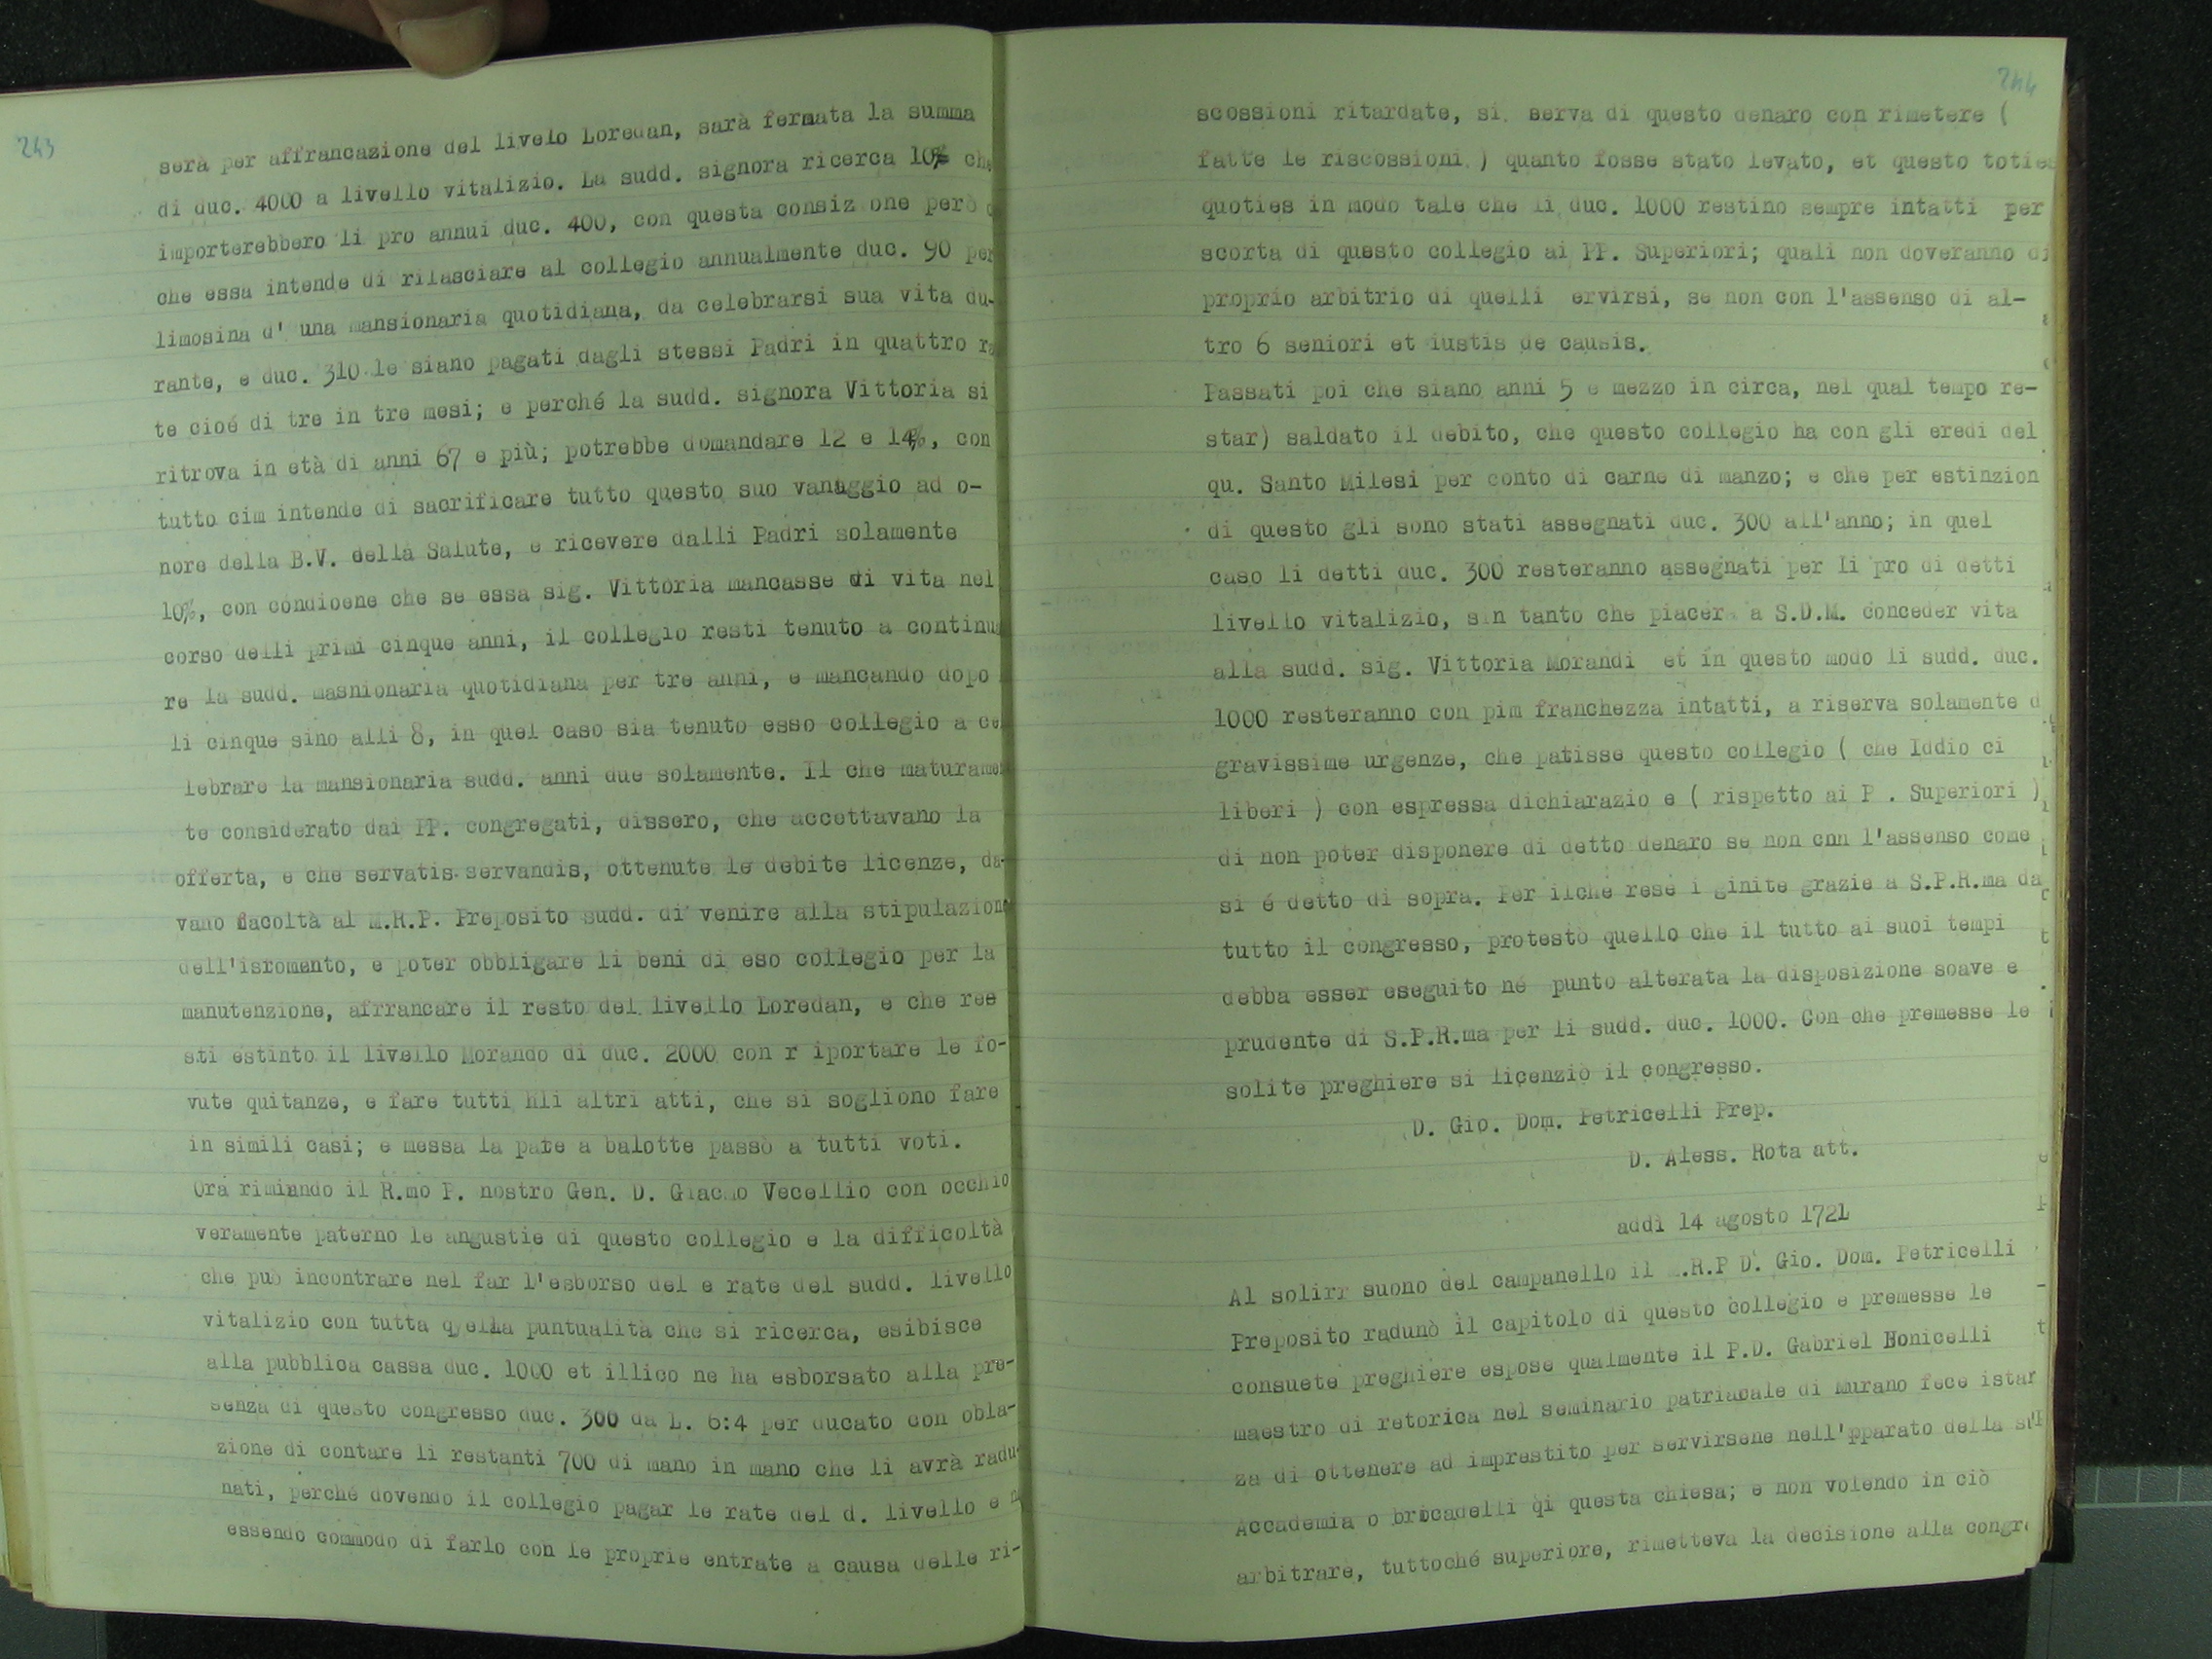 243
serà per affrancazione del livelo Loredan, sarà fermata la summa
di duc. 4000 a livello vitalizio. La sudd. signora ricerca 10% che
importerebbero li pro annui duc. 400, con questa consiz one però
che essa intende di rilasciare al collegio annualmente duc. 90 per
limosina d' una mansionaria quotidiana, da celebrarsi sua vita du-
rante, e duc. 310 le siano pagati dagli stessi Padri in quattro ra
te cioé di tre in tre mesi; e perché la sudd. signora Vittoria si
ritrova in età di anni 67 e più; potrebbe domandare 12 e 14%, con
tutto cim intende di sacrificare tutto questo suo vanaggio ad o-
nore della B.V. della Salute, e ricevere dalli Padri solamente
10%, con condioene che se essa sig. Vittoria mancasse di vita nel
corso delli primi cinque anni, il collegio resti tenuto a continua
re la sudd. masnionaria quotidiana per tre anni, e mancando dopo
li cinque sino alli 8, in quel caso sia tenuto esso collegio a ce
lebrare la mansionaria sudd. anni due solamente. Il che maturamen
te considerato dai PP. congregati, dissero, che accettavano la
offerta, e che servatis servandis, ottenute le debite licenze, da-
vano facoltà al M.R.P. Preposito sudd. di venire alla stipulazione
dell'isromento, e poter obbligare li beni di eso collegio per la
manutenzione, affrancare il resto del livello Loredan, e che ree
sti estinto il livello Morando di duc. 2000 con r iportare le fo-
vute quitanze, e fare tutti hli altri atti, che si sogliono fare
in simili casi; e messa la pate a balotte passò a tutti voti.
Ora rimirando il R.mo P. nostro Gen. D. Giacmo Vecellio con occhio
veramente paterno le angustie di questo collegio e la difficoltà
che può incontrare nel far l'esborso del e rate del sudd. livello
vitalizio con tutta quella puntualità che si ricerca, esibisce
alla pubblica cassa duc. 1000 et illico ne ha esborsato alla pre-
senza di questo congresso duc. 300 da L. 6:4 per ducato con obla-
zione di contare li restanti 700 di mano in mano che li avrà radu-
nati, perché dovendo il collegio pagar le rate del d. livello e n
essendo commodo di farlo con le proprie entrate a causa delle ri-
244
scossioni ritardate, si serva di questo denaro con rimetere (
fatte le riscossioni ) quanto fosse stato levato, et questo toties
quoties in modo tale che li duc. 1000 restino sempre intatti per
scorta di questo collegio ai PP. Superiori; quali non doveranno di
proprio arbitrio di quelli ervirsi, se non con l'assenso di al-
tro 6 seniori et iustis de causis.
Passati poi che siano anni 5 e mezzo in circa, nel qual tempo re-
star) saldato il debito, che questo collegio ha con gli eredi del
qu. Santo Milesi per conto di carne di manzo; e che per estinzion
di questo gli sono stati assegnati duc. 300 all'anno; in quel
caso li detti duc. 300 resteranno assegnati per li pro di detti
livello vitalizio, sin tanto che piacer a S.D.M. conceder vita
alla sudd. sig. Vittoria Morandi et in questo modo li sudd. duc.
1000 resteranno con pim franchezza intatti, a riserva solamente d
gravissime urgenze, che patisse questo collegio ( che Iddio ci
liberi ) con espressa dichiarazio e ( rispetto ai P . Superiori )
di non poter disponere di detto denaro se non cnn l'assenso come
si é detto di sopra. Per ilche rese i ginite grazie a S.P.R.ma da
tutto il congresso, protestò quello che il tutto ai suoi tempi
debba esser eseguito né punto alterata la disposizione soave e
prudente di S.P.R.ma per li sudd. duc. 1000. Con che premesse le
solite preghiere si licenziò il congresso.
D. Gio. Dom. Petricelli Prep.
D. Aless. Rota att.
addì 14 agosto 1721
Al solirr suono del campanello il .R.P D. Gio. Dom. Petricelli
Preposito radunò il capitolo di questo collegio e premesse le
consuete preghiere espose qualmente il P.D. Gabriel Bonicelli
maestro di retorica nel seminario patriacale di Murano fece istan
za di ottenere ad imprestito per servirsene nell'pparato della su
Accademia o brocadelli qi questa chiesa; e non volendo in ciò
arbitrare, tuttoché superiore, rimetteva la decisione alla congre